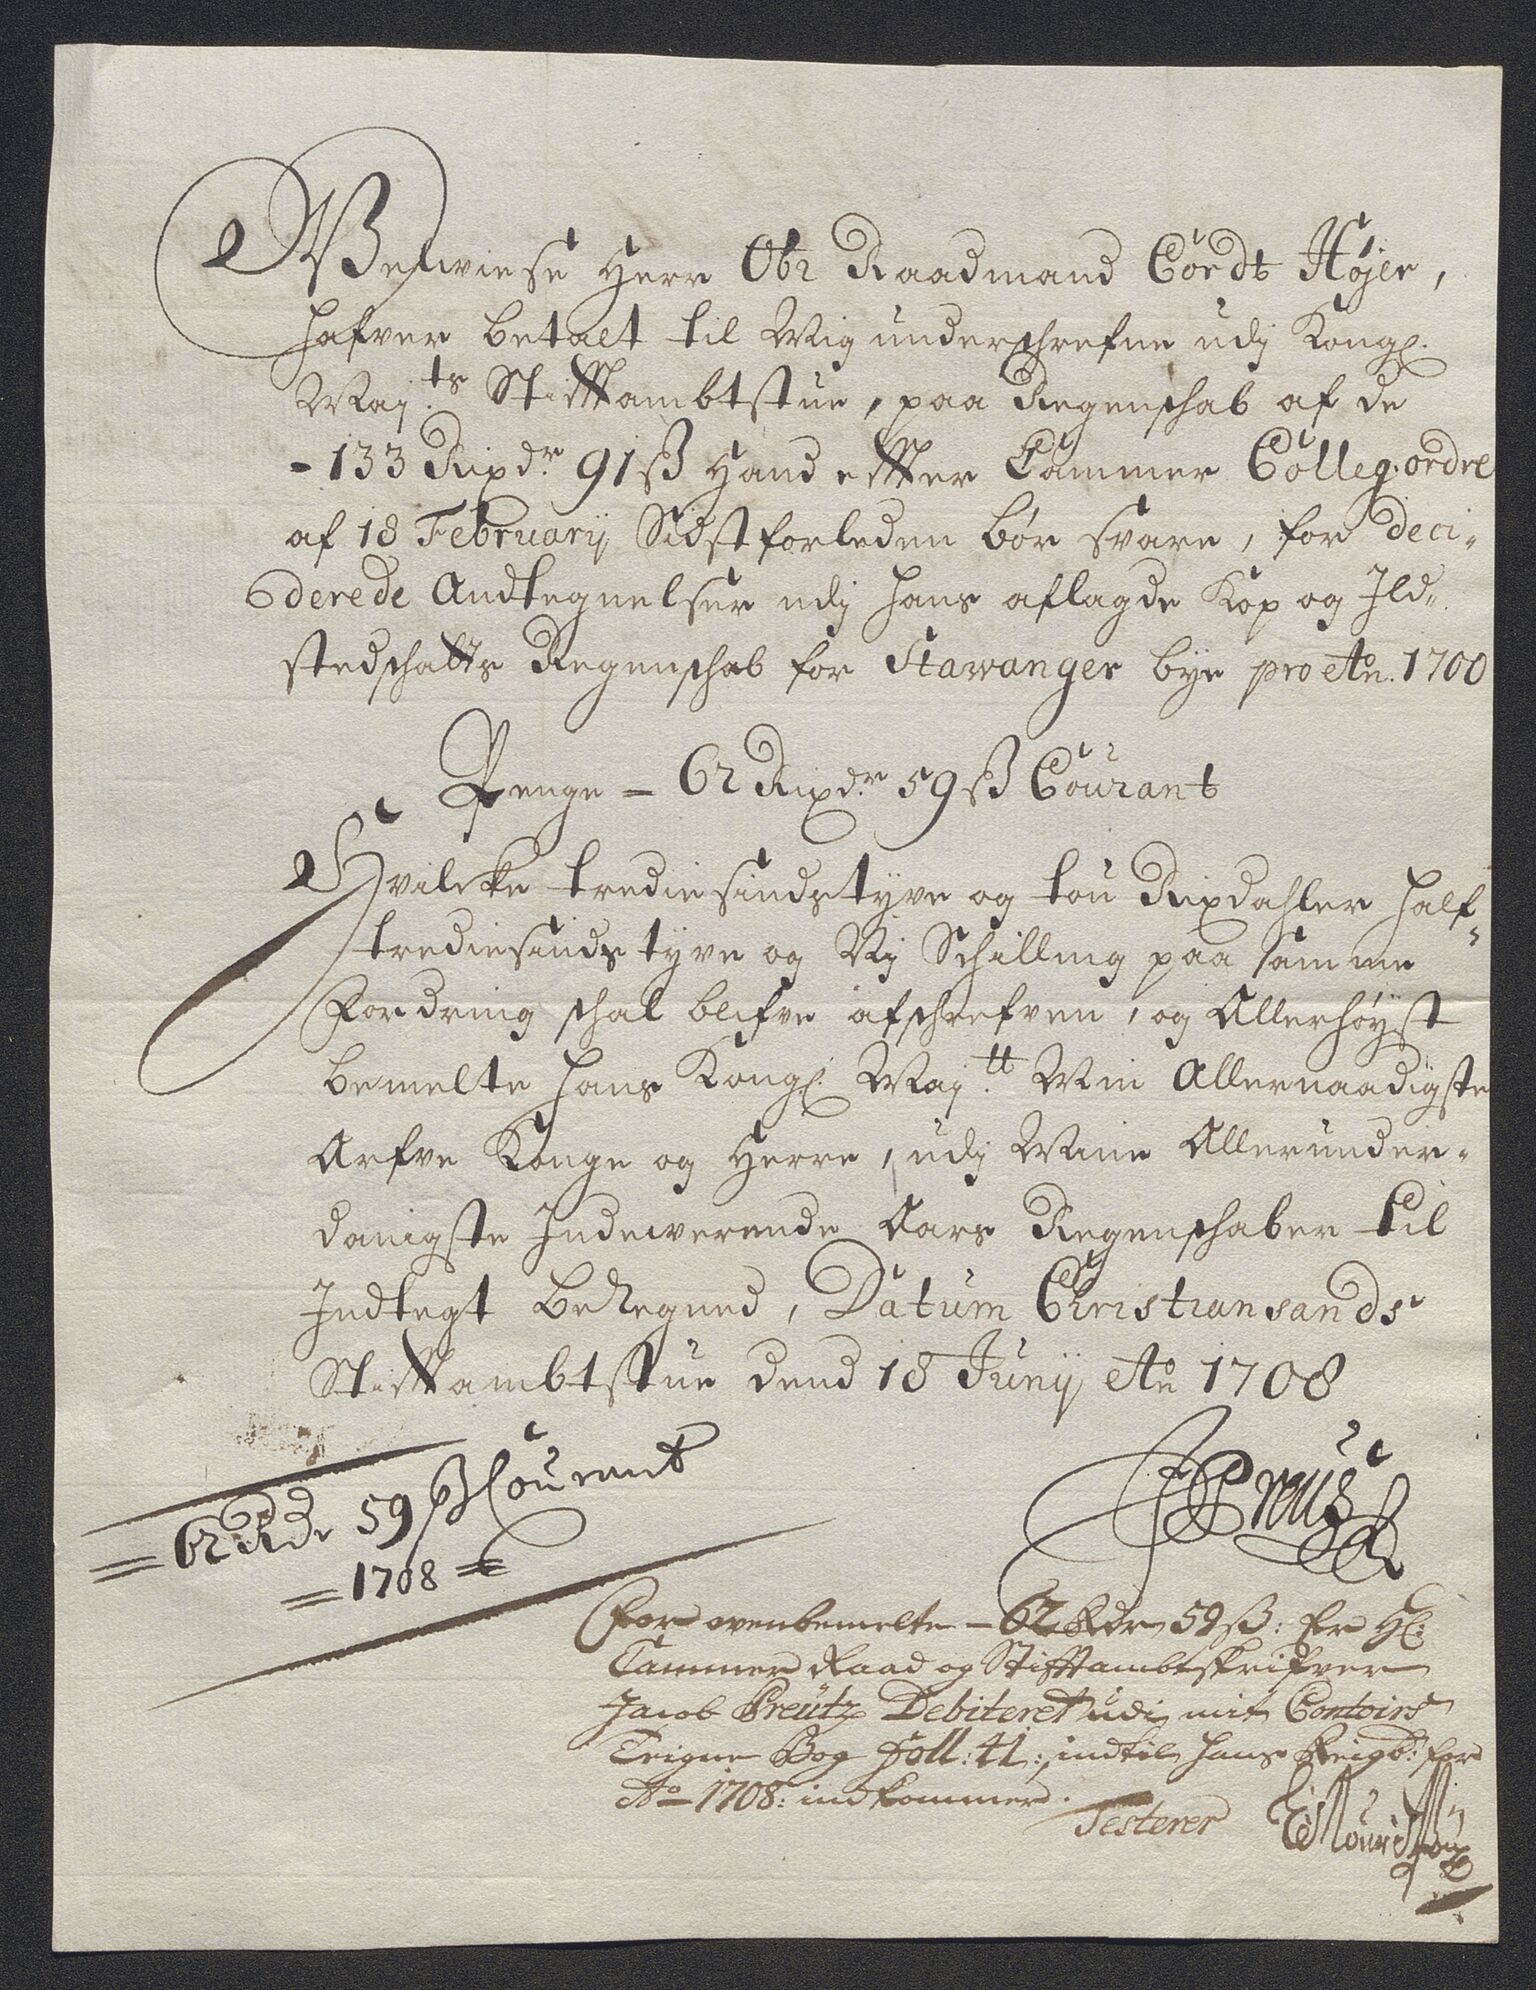 Velwiese Herr Obr Raadmand Cordt Højer,
hafver betalt til Mig underschrefne udj Kongl.
Maj:ts Stifftambtstue, paa Regenschab af de
- 133 Rixdr 91 ß Hand effter Cammer Colleg: ordre
af 18 Februarij Sidstforleden bør svare, for deci-
derede Andtegnelser udj hans aflagde Kop og Ild-
stedschatts Regenschab for Stawanger bye pro Ao. 1700
Penge - 62 Rixdr 59 ß Courant
Hvilcke trediesindstyve og tou Rixdahler half-
trediesindstyve og Nj Schilling paa samme
Fordring schal blifve afschrefven, og Allerhøyst
bemelte hans Kongl. Maj:tt Min Allernaadigste
Arfve Konge og Herre, udj Mine Allerunder-
danigste Indeverende Aars Regenschaber til
Indtegt beregned, Datum Christiansands
Stifftambtstue dend 18 Junij Ao 1708
JPreus
= 62 Rdr 59 ß Courant
= 1708 =
For ovenbemelte - 62 Rdr 59 ß: Er Hl:
Cammer Raad og Stifftambtskrifver
Jacob Preutz Debiteret udi mit Contoirs
Teigne Bog Foll: 41:, indtil hans Reigb: for
Ao 1708: indkommer.
Testerer